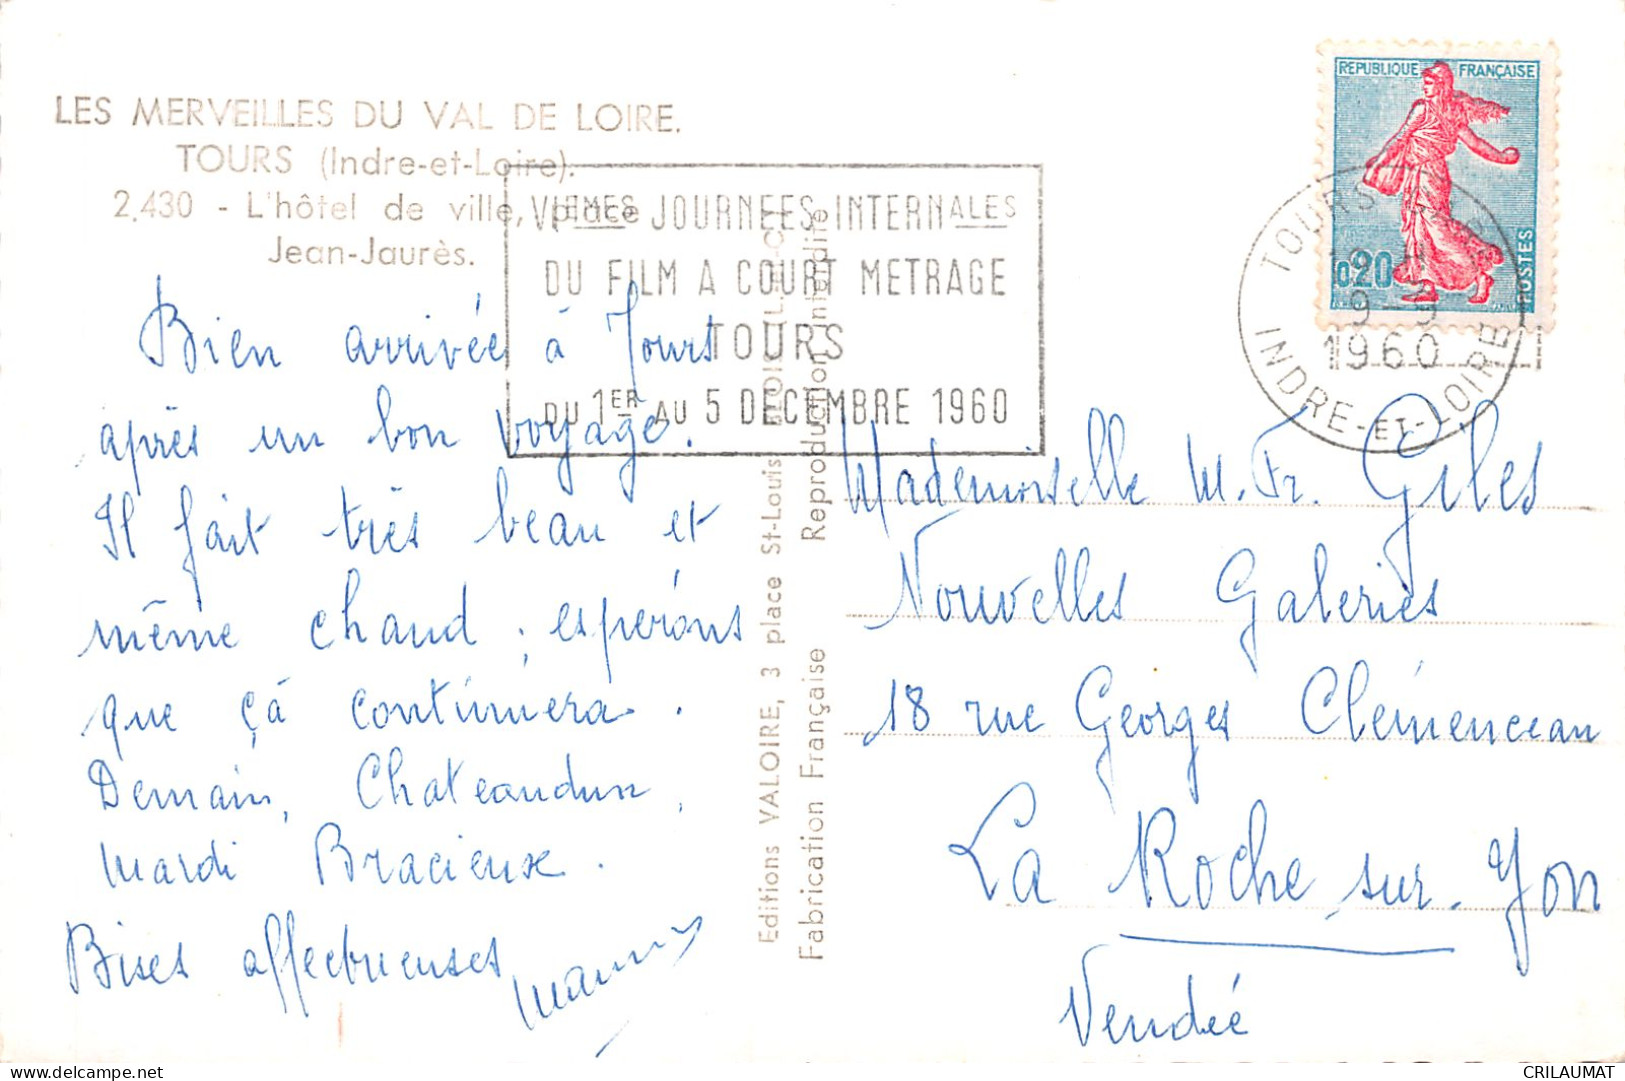 LES MERVEILLES DU VAL DE LOIRE.
TOURS (Indre-et-Loire).
2.430 - L'hôtel de ville, place
Jean-Jaurès.
VIEMES JOURNEES INTERNALES
DU FILM A COURT METRAGE
TOURS
DU 1ER AU 5 DECEMBRE 1960
REPUBLIQUE FRANÇAISE
0,20
POSTES
TOURS
1960
INDRE-ET-LOIRE
Bien arrivée à Tours
après un bon voyage.
Il fait très beau et
même chaud ; espérons
que çà continuera.
Demain, Chateaudun,
Mardi Bracieux.
Bises affectueuses
Editions VALOIRE, 3 place St-Louis
Fabrication Française Reproduction Interdite
Mademoiselle M. Fr. Giles
Nouvelles Galeries
18 rue Georges Clémenceau
La Roche sur Yon
Vendée
CRILAUMAT